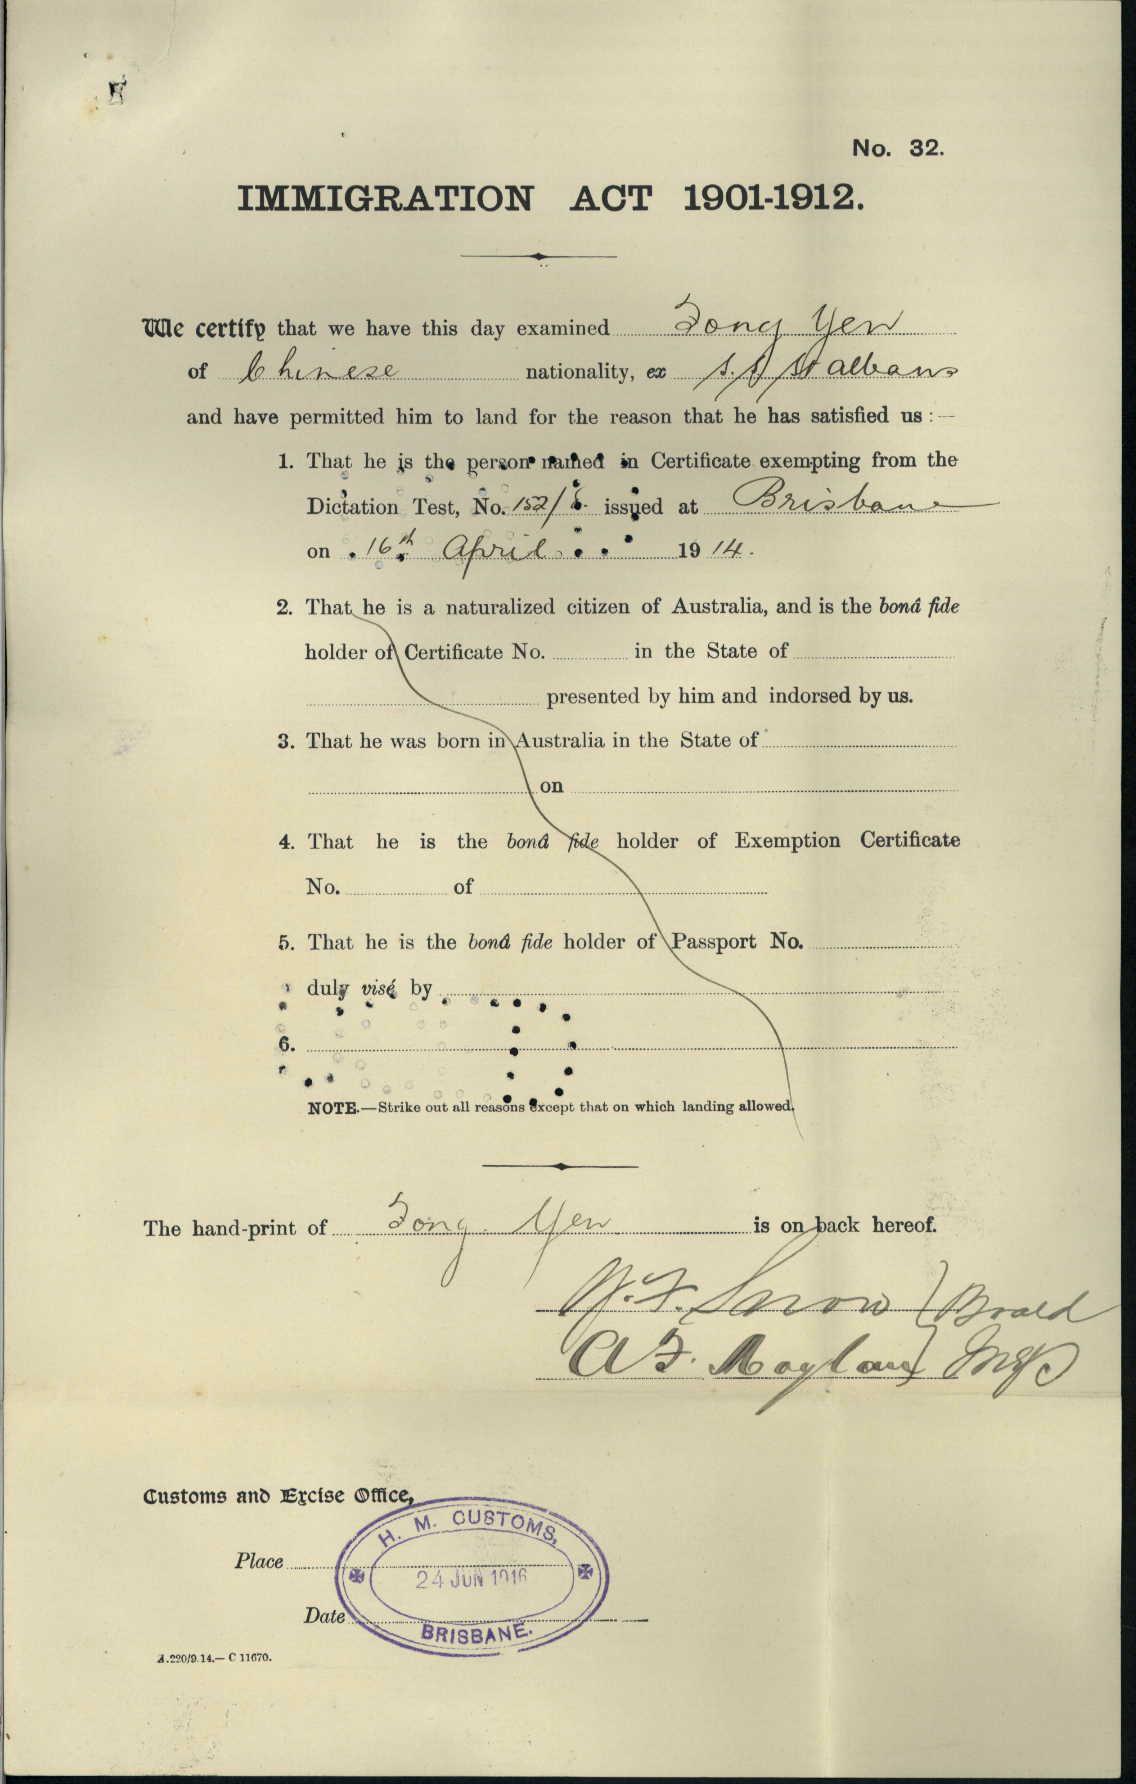 No. 32.
IMMIGRATION ACT 1901-1912.
We certify that we have this day examined Fong Yen
of Chinese nationality, ex S.S. St Albans
and have permitted him to land for the reason that he has satisfied us :—
1. That he is the person named in Certificate exempting from the
Dictation Test, No. 152/ issued at Brisbane
on 16th April 1914.
2. That he is a naturalized citizen of Australia, and is the bonâ fide
holder of Certificate No. in the State of
presented by him and indorsed by us.
3. That he was born in Australia in the State of
on
4. That he is the bonâ fide holder of Exemption Certificate
No. of
5. That he is the bonâ fide holder of Passport No.
duly visé by
6.
NOTE.—Strike out all reasons except that on which landing allowed.
The hand-print of Fong Yen is on back hereof.
Snow } Board
A F. } Insp
Customs and Excise Office,
H. M. CUSTOMS,
Place
24 JUN 1916
Date
BRISBANE.
A.220/9.14.— C 11670.